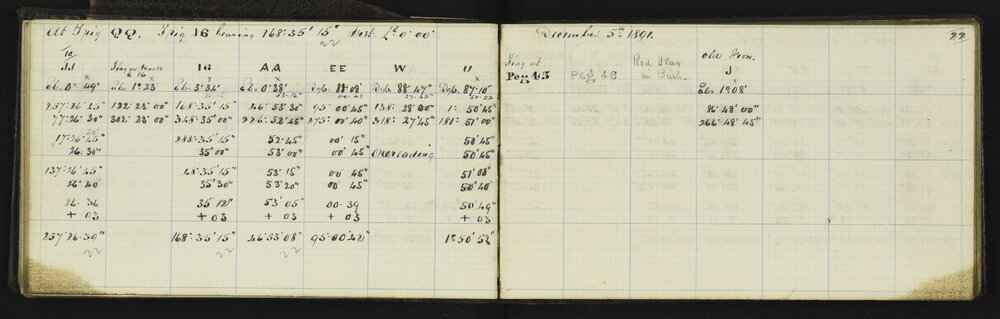 At Trig QQ. Trig 16 bearing 168°35' 15" Inst. L° 0' 00"
22
December 5th 1891.
22
To
JJ 16 AA EE W U
Flag at Peg 45
Peg 46
Red Flag in Bush
Old Trow. J
Ele. 0° 49" Ele 1° 23 Ele 3° 34' Ele 0° 38' Dep. 88° 08' Dep. 88° 47" Dep. 87° 10" Ele 1° 08'
257° 26' 25" 122° 23' 00 168° 35' 15" 46° 53' 30" 95° 00' 45" 138° 28' 00" 1° 50' 45" 86° 48' 00"
77° 26' 30" 302° 23' 00 348° 35' 00" 226° 52' 45" 275° 00' 40" 318° 27' 45" 181° 51' 00" 266° 48' 45"
17° 26' 45" 288° 35' 15" 52' 45" 00' 15" 50' 45"
26' 30" 35' 00" 53' 00" 00' 45" Overlading 50' 45"
137° 26' 45" 48° 35' 15" 53' 15" 00' 45" 51' 00"
26' 40 35' 30" 53' 20" 00' 45" 50' 40
26. 36 35' 12" 53' 05" 00. 39 50' 49"
+ 03 + 03 + 03 + 03 + 03
257° 26' 39" 168° 35' 15" 46° 53' 08" 95° 00' 42" 1° 50' 52"
22 22 22 22 22